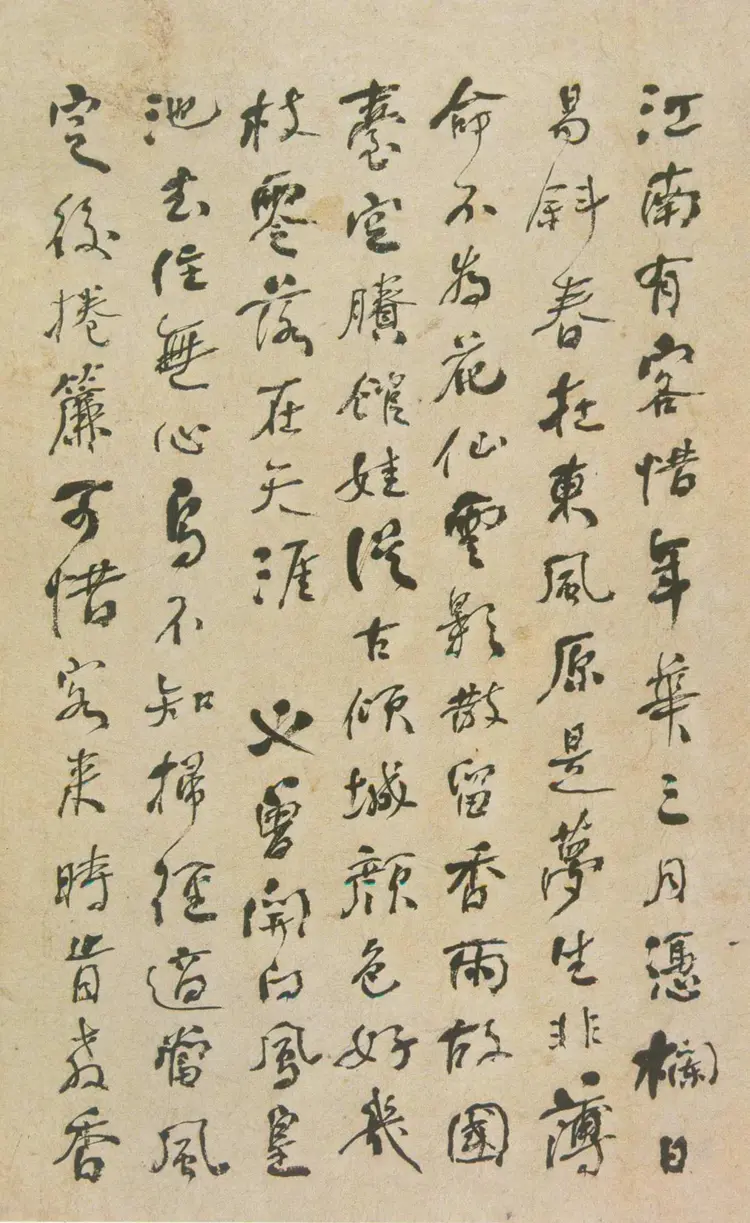 江南有客惜年華三月憑欄日
易斜春在東風原是夢生非薄
命不為花仙雲影散留香雨故國
臺空賸館娃從古傾城顏色好幾
枝零落在天涯　又曾開向鳳皇
池去住無心鳥不知掃徑適當風
定後捲簾可惜客來時肯教香